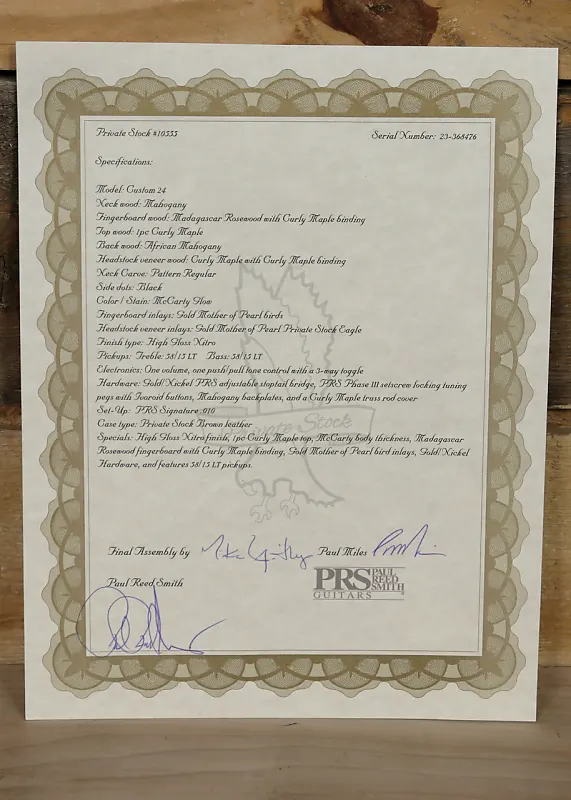 Private Stock #10555 Serial Number: 23-368476
Specifications:
Model: Custom 24
Neck wood: Mahogany
Fingerboard wood: Madagascar Rosewood with Curly Maple binding
Top wood: 1pc Curly Maple
Back wood: African Mahogany
Headstock veneer wood: Curly Maple with Curly Maple binding
Neck Carve: Pattern Regular
Side dots: Black
Color / Stain: McCarty Glow
Fingerboard inlays: Gold Mother of Pearl birds
Headstock veneer inlays: Gold Mother of Pearl Private Stock Eagle
Finish type: High Gloss Nitro
Pickups: Treble: 58/15 LT Bass: 58/15 LT
Electronics: One volume, one push/pull tone control with a 3-way toggle
Hardware: Gold/Nickel PRS adjustable stoptail bridge, PRS Phase III setscrew locking tuning
pegs with Ivoroid buttons, Mahogany backplates, and a Curly Maple truss rod cover
Set-Up: PRS Signature .010
Case type: Private Stock Brown leather
Private Stock
Specials: High Gloss Nitro finish, 1pc Curly Maple top, McCarty body thickness, Madagascar
Rosewood fingerboard with Curly Maple binding, Gold Mother of Pearl bird inlays, Gold/Nickel
Hardware, and features 58/15 LT pickups.
Final Assembly by Paul Miles
Paul Reed Smith
PRS PAUL REED SMITH
GUITARS